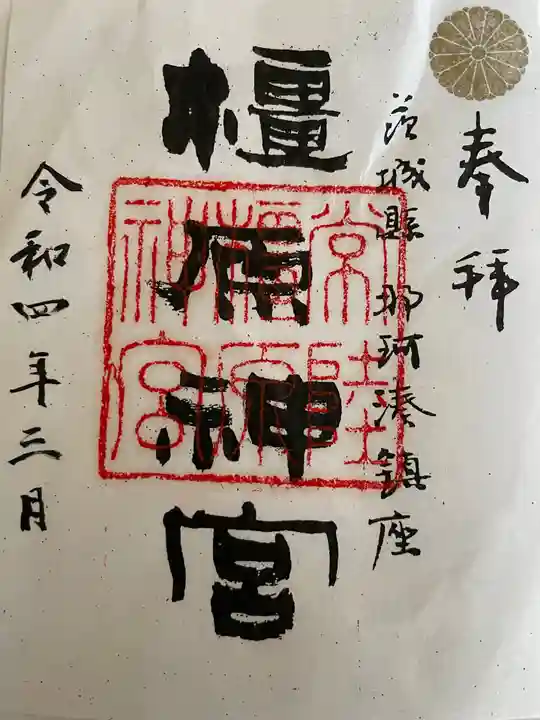 奉拝
茨城縣那珂湊鎮座
橿原神宮
常陸
橿原
神宮
令和四年三月